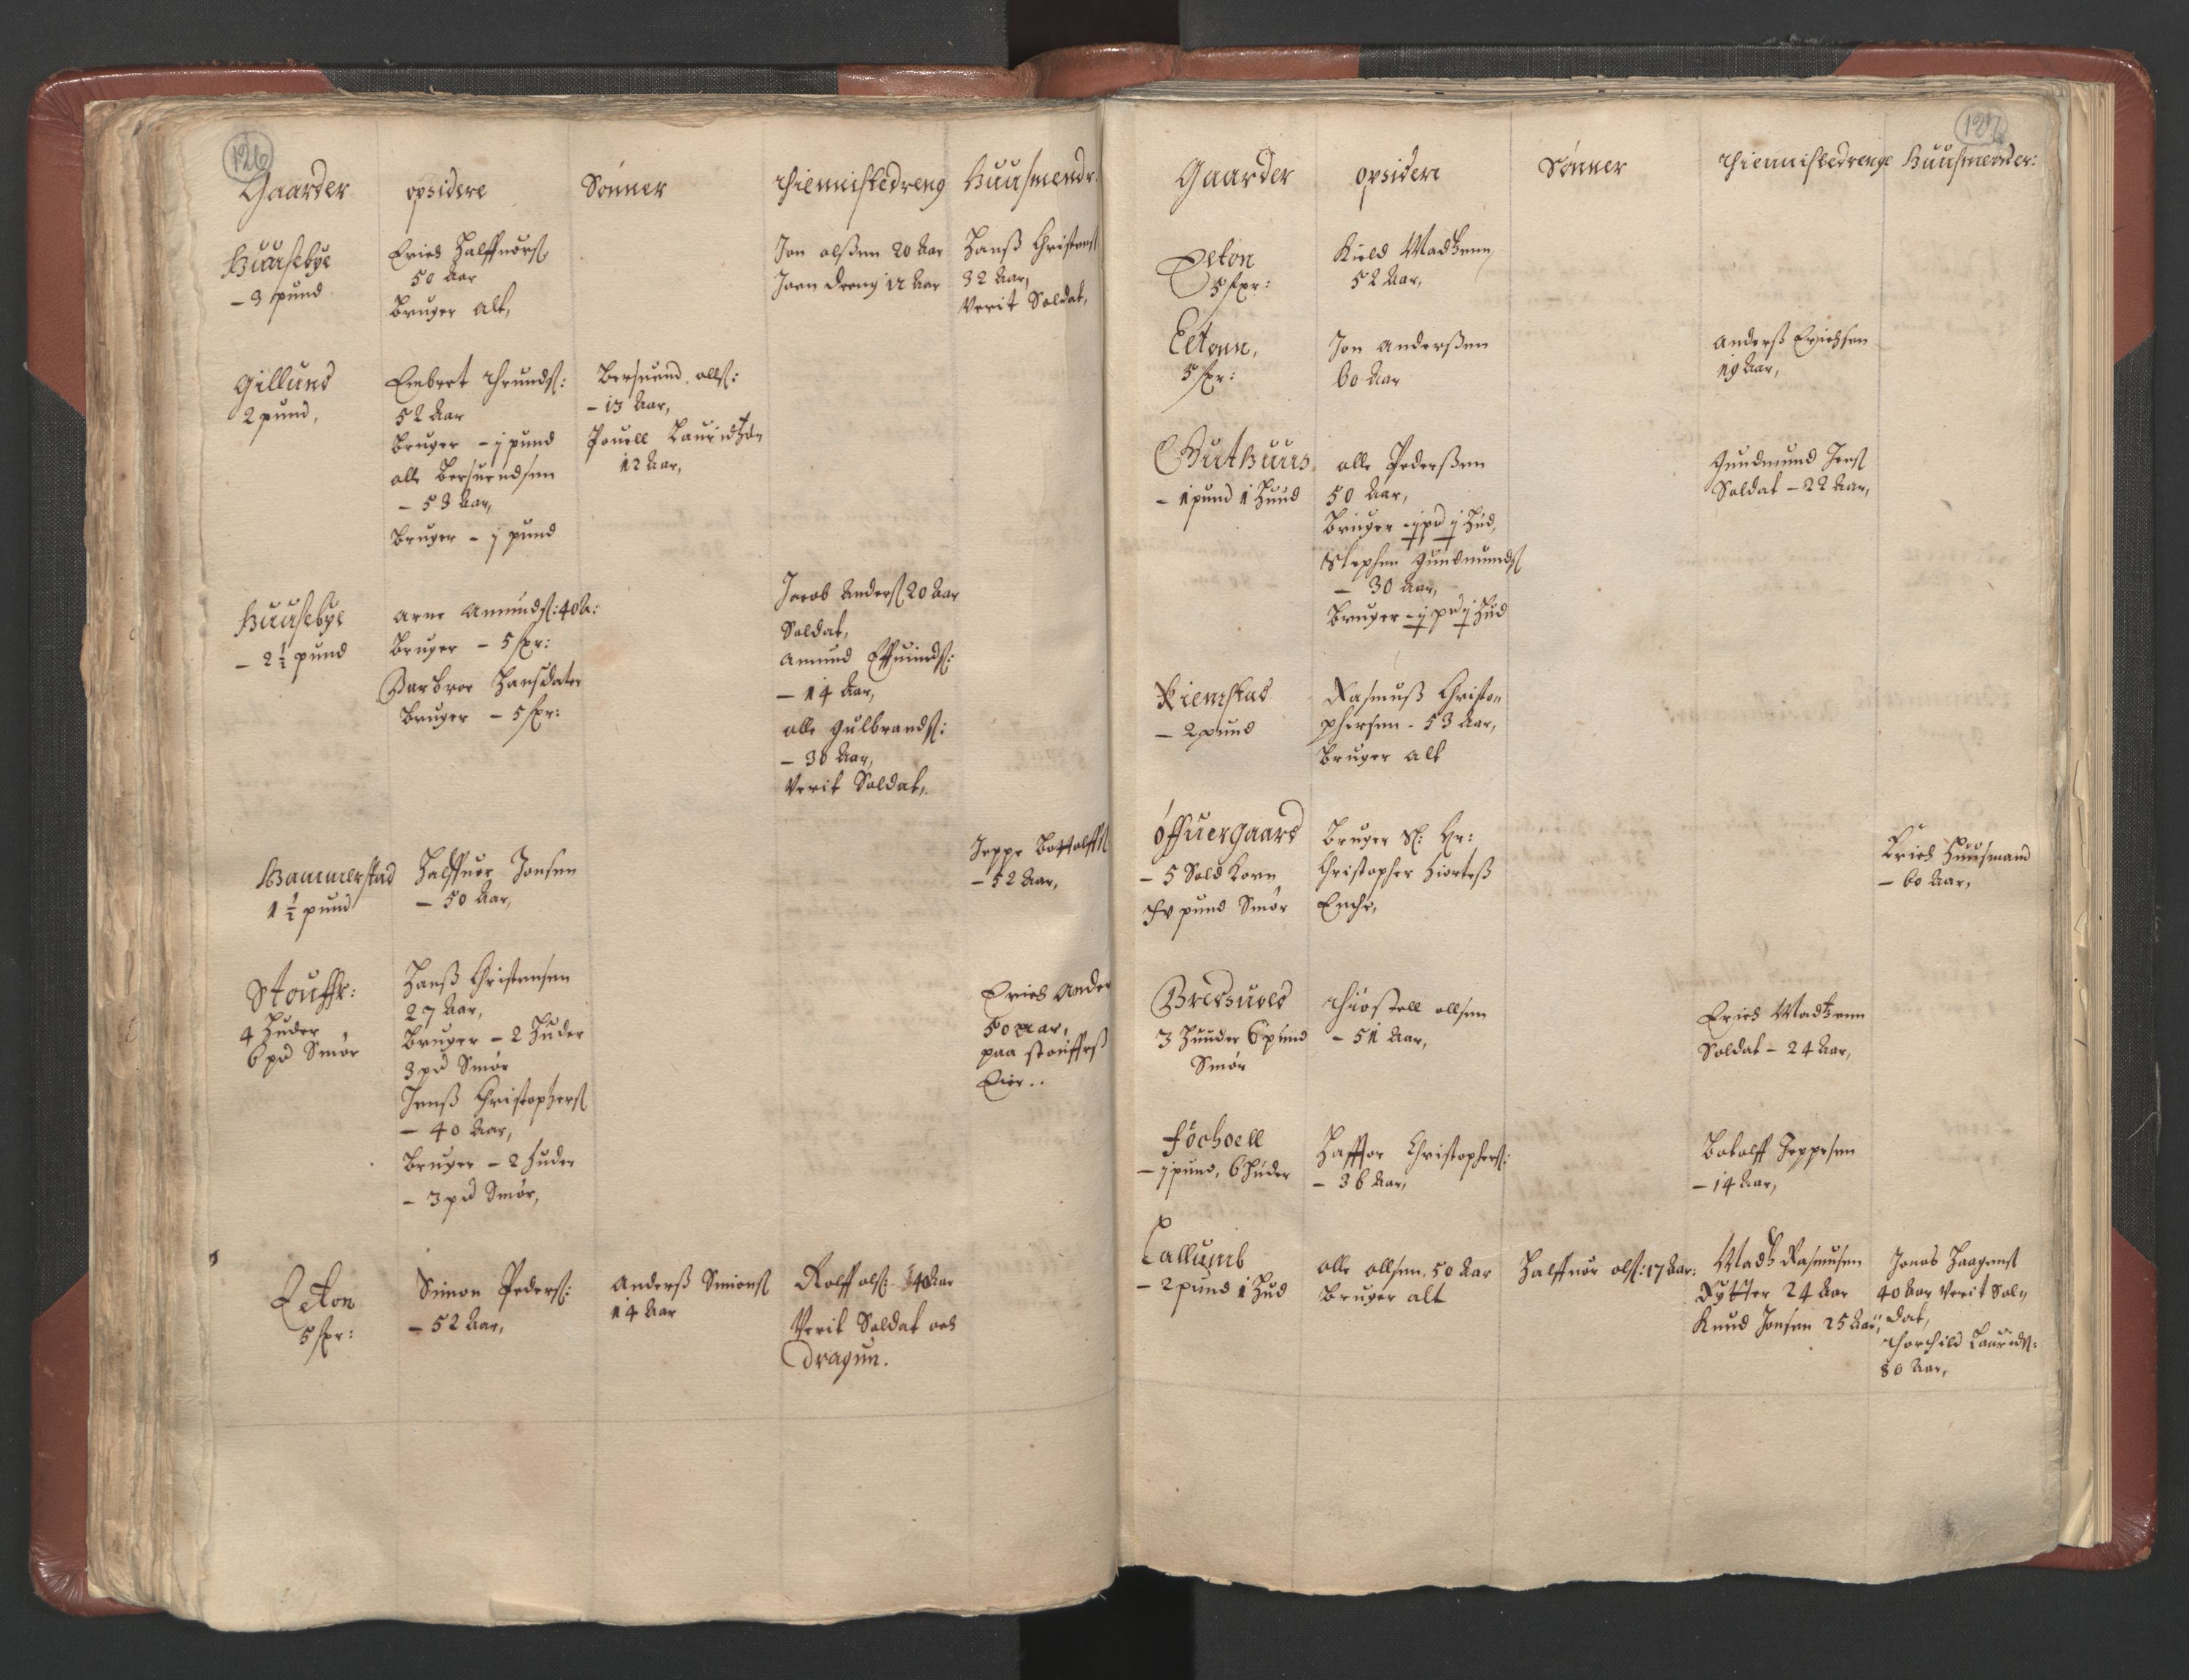 126
Gaarder opsidere Sønner thiennistedreng Huusmendr.
Huusebye
- 3 pund
Erich Halffuors.
50 Aar
Bruger alt,
Jon olßen 20 Aar
Joen dreng 12 Aar
Hanß Christens
32 Aar,
Verit Soldat,
Gillund
2 pund,
Embret thrunds:
52 Aar
Bruger - j pund
olle Bersuendsen
- 53 Aar,
Bruger - j pund
Bersuend olls:
- 13 Aar,
Pouell Lauridtzøn
12 Aar,
Huusebye
- 2 ½ pund
Arne Amunds: 40 A:
Bruger - 5 spr:
Barbroe Hansdater
Bruger - 5 spr:
Jacob Anders 20 Aar
Soldat,
Amund Effuinds:
- 14 Aar,
olle gulbrands:
- 30 Aar,
Verit Soldat,
Hammerstad
1 ½ pund
Halffuor Jonsen
- 50 Aar,
Jeppe Bottolffs
- 52 Aar,
Stouffr:
4 Huder
6 pd Smør
Hanß Christensen
27 Aar,
Bruger - 2 Huder
3 pd Smør
Jenß Christophers
- 40 Aar,
Bruger - 2 huder
- 3 pd Smør,
Erich Ander
50 Aar,
paa stouffrß
Eier..
Eeton
5 spr:
Simon Peders:
- 52 Aar,
Anderß Simons
14 Aar
Rolff ols: 40 Aar
Verit Soldat och
dragun.
127
Gaarder opsidere Sønner thiennistedrenge Huusmender:
Eeton
5 spr:
Kield Madtzenn
52 Aar,
Eetonn,
5 spr:
Jon Anderßen
60 Aar
Anderß Erichsen
19 Aar,
Gutthuus
- 1 pund 1 Huud
olle Pederßen
50 Aar,
Bruger - j pd j Hud,
Stephen gundmunds
- 30 Aar,
Bruger - j pd j Hud
gundmund Jens
Soldat - 22 Aar,
Kiemstad
- 2 pund
Rasmuß Christo„
phersen - 53 Aar,
Bruger alt
Øffuergaard
- 5 Sold Korn
thr pund Smør
Bruger Sl: Hr:
Christopher Hiorteß
Enche,
Erich Huusmand
- 60 Aar,
Bredsued
3 Huuder 6 pund
Smør
thiostell ollsen
- 51 Aar,
Erich Madtzenn
Soldat - 24 Aar,
Fochoell
- j pund, 6 Huder
Haffuor Christophers:
- 36 Aar,
Botolff Jeppesen
- 14 Aar,
Callumb
- 2 pund 1 Hud
olle ollsen 50 Aar
Bruger alt
Halffuor ols: 17 Aar:
Madtz Rasmusen
Rytter 24 Aar
Knud Jonsen 25 Aar,
Jonas Haagens
40 Aar Verit Sol„
dat,
thorchild Laurids:
80 Aar,